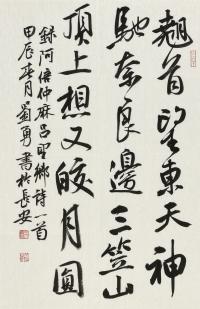 翹首望東天神
馳奈良邊三笠山
頂上想又皎月圓
錄阿倍仲麻呂望鄉詩一首
甲辰春月勇書於長安